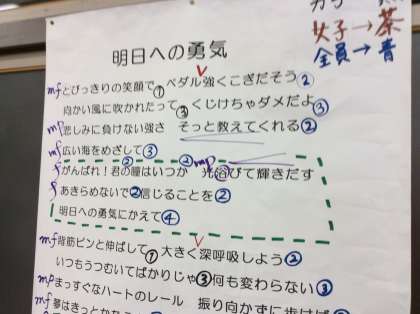 女子→茶
全員→青
明日への勇気
mf とびっきりの笑顔で① ペダル強くこぎだそう②
向かい風に吹かれたって③ くじけちゃダメだよ③
mp 悲しみに負けない強さ そっと教えてくれる②
mf 広い海をめざして③
f がんばれ!君の瞳はいつか② mp 光浴びて輝きだす
f あきらめないで②信じることを②
明日への勇気にかえて④
mf 背筋ピンと伸ばして① 大きく深呼吸しよう②
いつもうつむいてばかりじゃ③何も変わらない③
mp まっすぐなハートのレール 振り向かずに歩けば
mf 夢はきっとかな